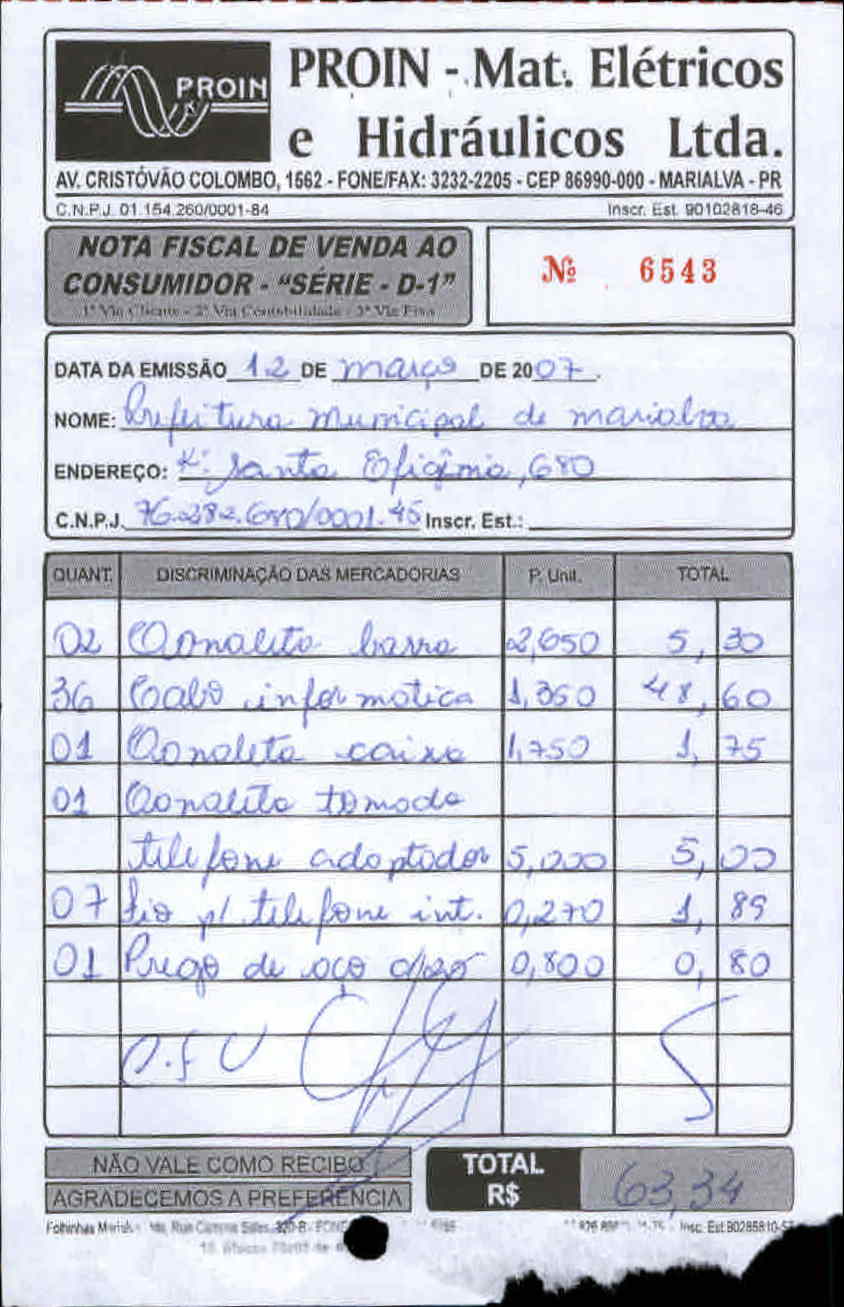 PROIN
PROIN - Mat. Elétricos
e Hidráulicos Ltda.
AV. CRISTÓVÃO COLOMBO, 1562 - FONE/FAX: 3232-2205 - CEP 86990-000 - MARIALVA - PR
C.N.P.J. 01.154.260/0001-84 Inscr. Est. 90102818-46
NOTA FISCAL DE VENDA AO
CONSUMIDOR - "SÉRIE - D-1"
1ª Via Cliente - 2ª Via Contabilidade - 3ª Via Fixa
Nº 6543
DATA DA EMISSÃO 12 DE março DE 2007.
NOME: Prefeitura municipal de marialva
ENDEREÇO: R: Santa Efigênia, 680
C.N.P.J. 76.282.680/0001.45 Inscr. Est.:
QUANT. DISCRIMINAÇÃO DAS MERCADORIAS P. Unit. TOTAL
02 Canaleta barra 2,650 5,30
36 Cabo informatica 1,350 48,60
01 Canaleta caixa 1,750 1,75
01 Canaleta tomada
telefone adaptador 5,000 5,00
07 fio p/ telefone int. 0,270 1,89
01 Prego de aço 0,800 0,80
NÃO VALE COMO RECIBO
AGRADECEMOS A PREFERÊNCIA
TOTAL
R$ 63,34